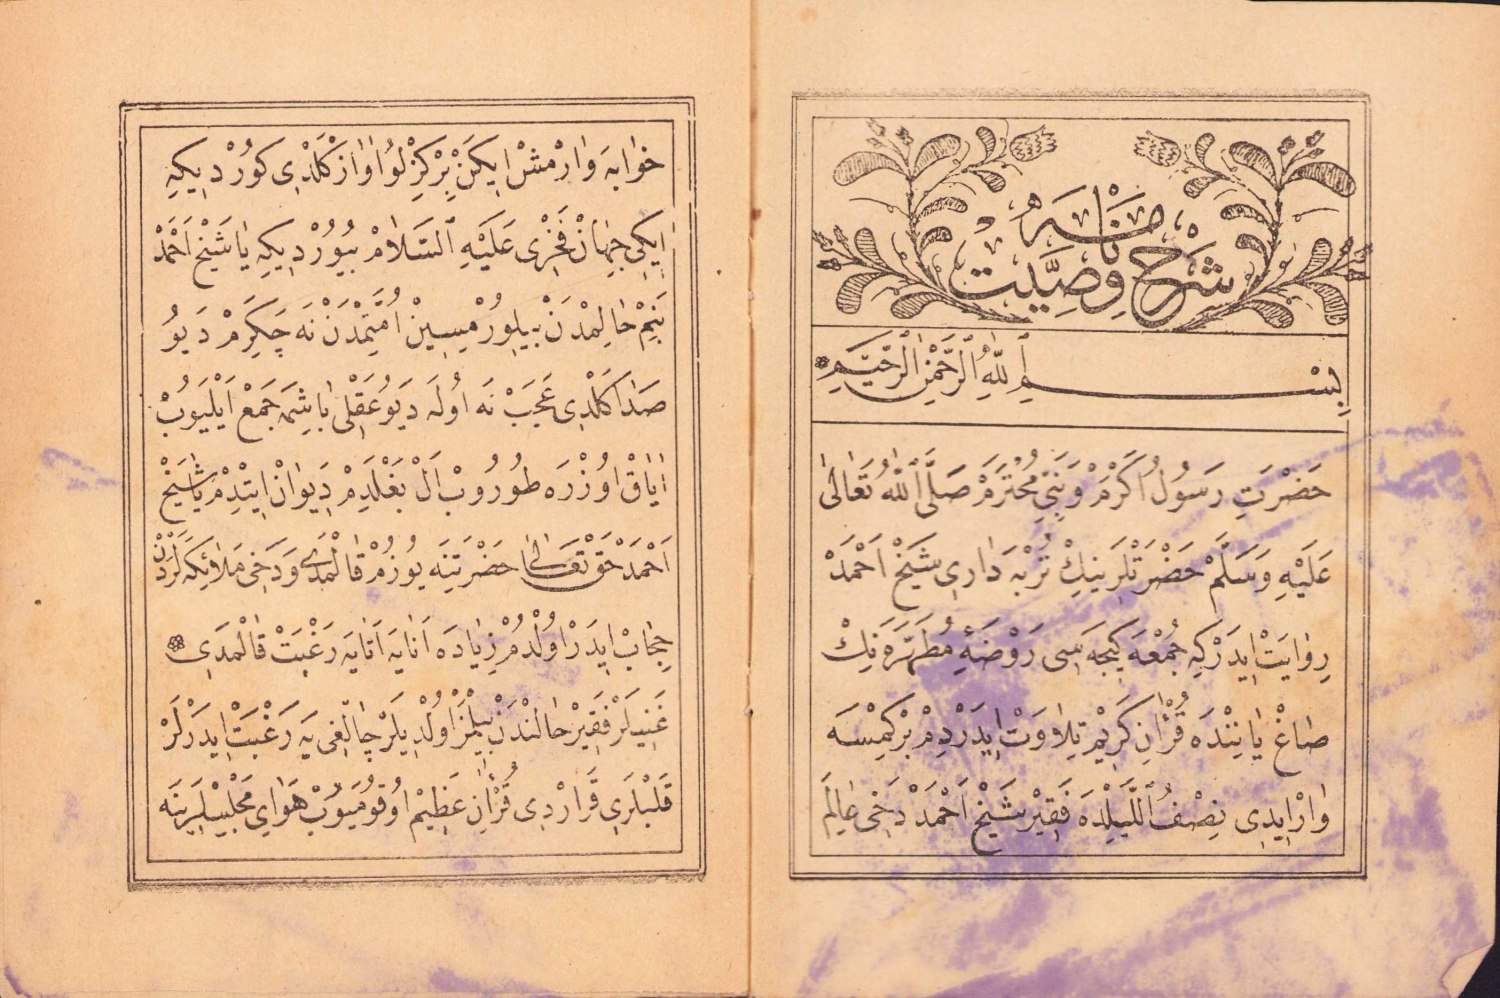 شرح وصيت نامه
بِسْمِ اللهِ الرَّحْمٰنِ الرَّحِيمِ
حَضْرَتِ رَسُولُ اَكْرَمْ وَنَبِىِّ مُحْتَرَمْ صَلَّى اللهُ تَعَالٰى
عَلَيْهِ وَسَلَّمْ حَضْرَتْلَرِينِكْ تُرْبَهدَارِى شَيْخْ اَحْمَدْ
رِوَايَتْ اِيدَرْكِه جُمْعَه كِيجَهسِى رَوْضَهٔ مُطَهَّرَهنِكْ
صَاغْ يَانِنْدَه قُرْآنِ كَرِيمْ تِلَاوَتْ اِيدَرْدِمْ بَرْ كِمْسَه
وَارْ اِيدِى نِصْفُ اللَّيْلِدَه فَقِيرْ شَيْخْ اَحْمَدْ دَخِى عَالِمَ
خوَابَه وَارْمِشْ اِيكَنْ بِرْ كِزْلُو اَوَازْ كَلْدِى كُورْدِيكِه
اِيكِى جِهَانْ فَخْرِى عَلَيْهِ السَّلَامْ بُيُورْدِيكِه يَا شَيْخْ اَحْمَدْ
بَنِمْ حَالِمْدَنْ بِيلُورْمِيسِينْ اُمَّتِمْدَنْ نَه چَكِرَمْ دَيُو
صَدَا كَلْدِى عَجَبْ نَه اُولَه دَيُو عَقْلِى بَاشِمَه جَمَعْ اَيْلَيُوبْ
اَيَاقْ اُوزْرَه طُورُوبْ اَلْ بَغْلَدِمْ دِيوَانْ اِيتْدِمْ يَا شَيْخْ
اَحْمَدْ حَقْ تَعَالٰى حَضْرَتِينَه يُوزُمْ قَالْمَدِى وَدَخِى مَلَائِكَهلَرْدَنْ
حِجَابْ اِيدَرْ اُولْدُمْ زِيَادَه اَنَايَه اَتَايَه رَغْبَتْ قَالْمَدِى
غَنِيلَرْ فَقِيرْ حَالِنْدَنْ بِيلْمَزْ اُولْدِيلَرْ چَالْغِىيَه رَغْبَتْ اِيدَرْلَرْ
قَلْبْلَرِى قَرَارْدِى قُرْآنِ عَظِيمْ اُوقُومَيُوبْ هَوَاىِ مَجْلِيسْلَرِينَه